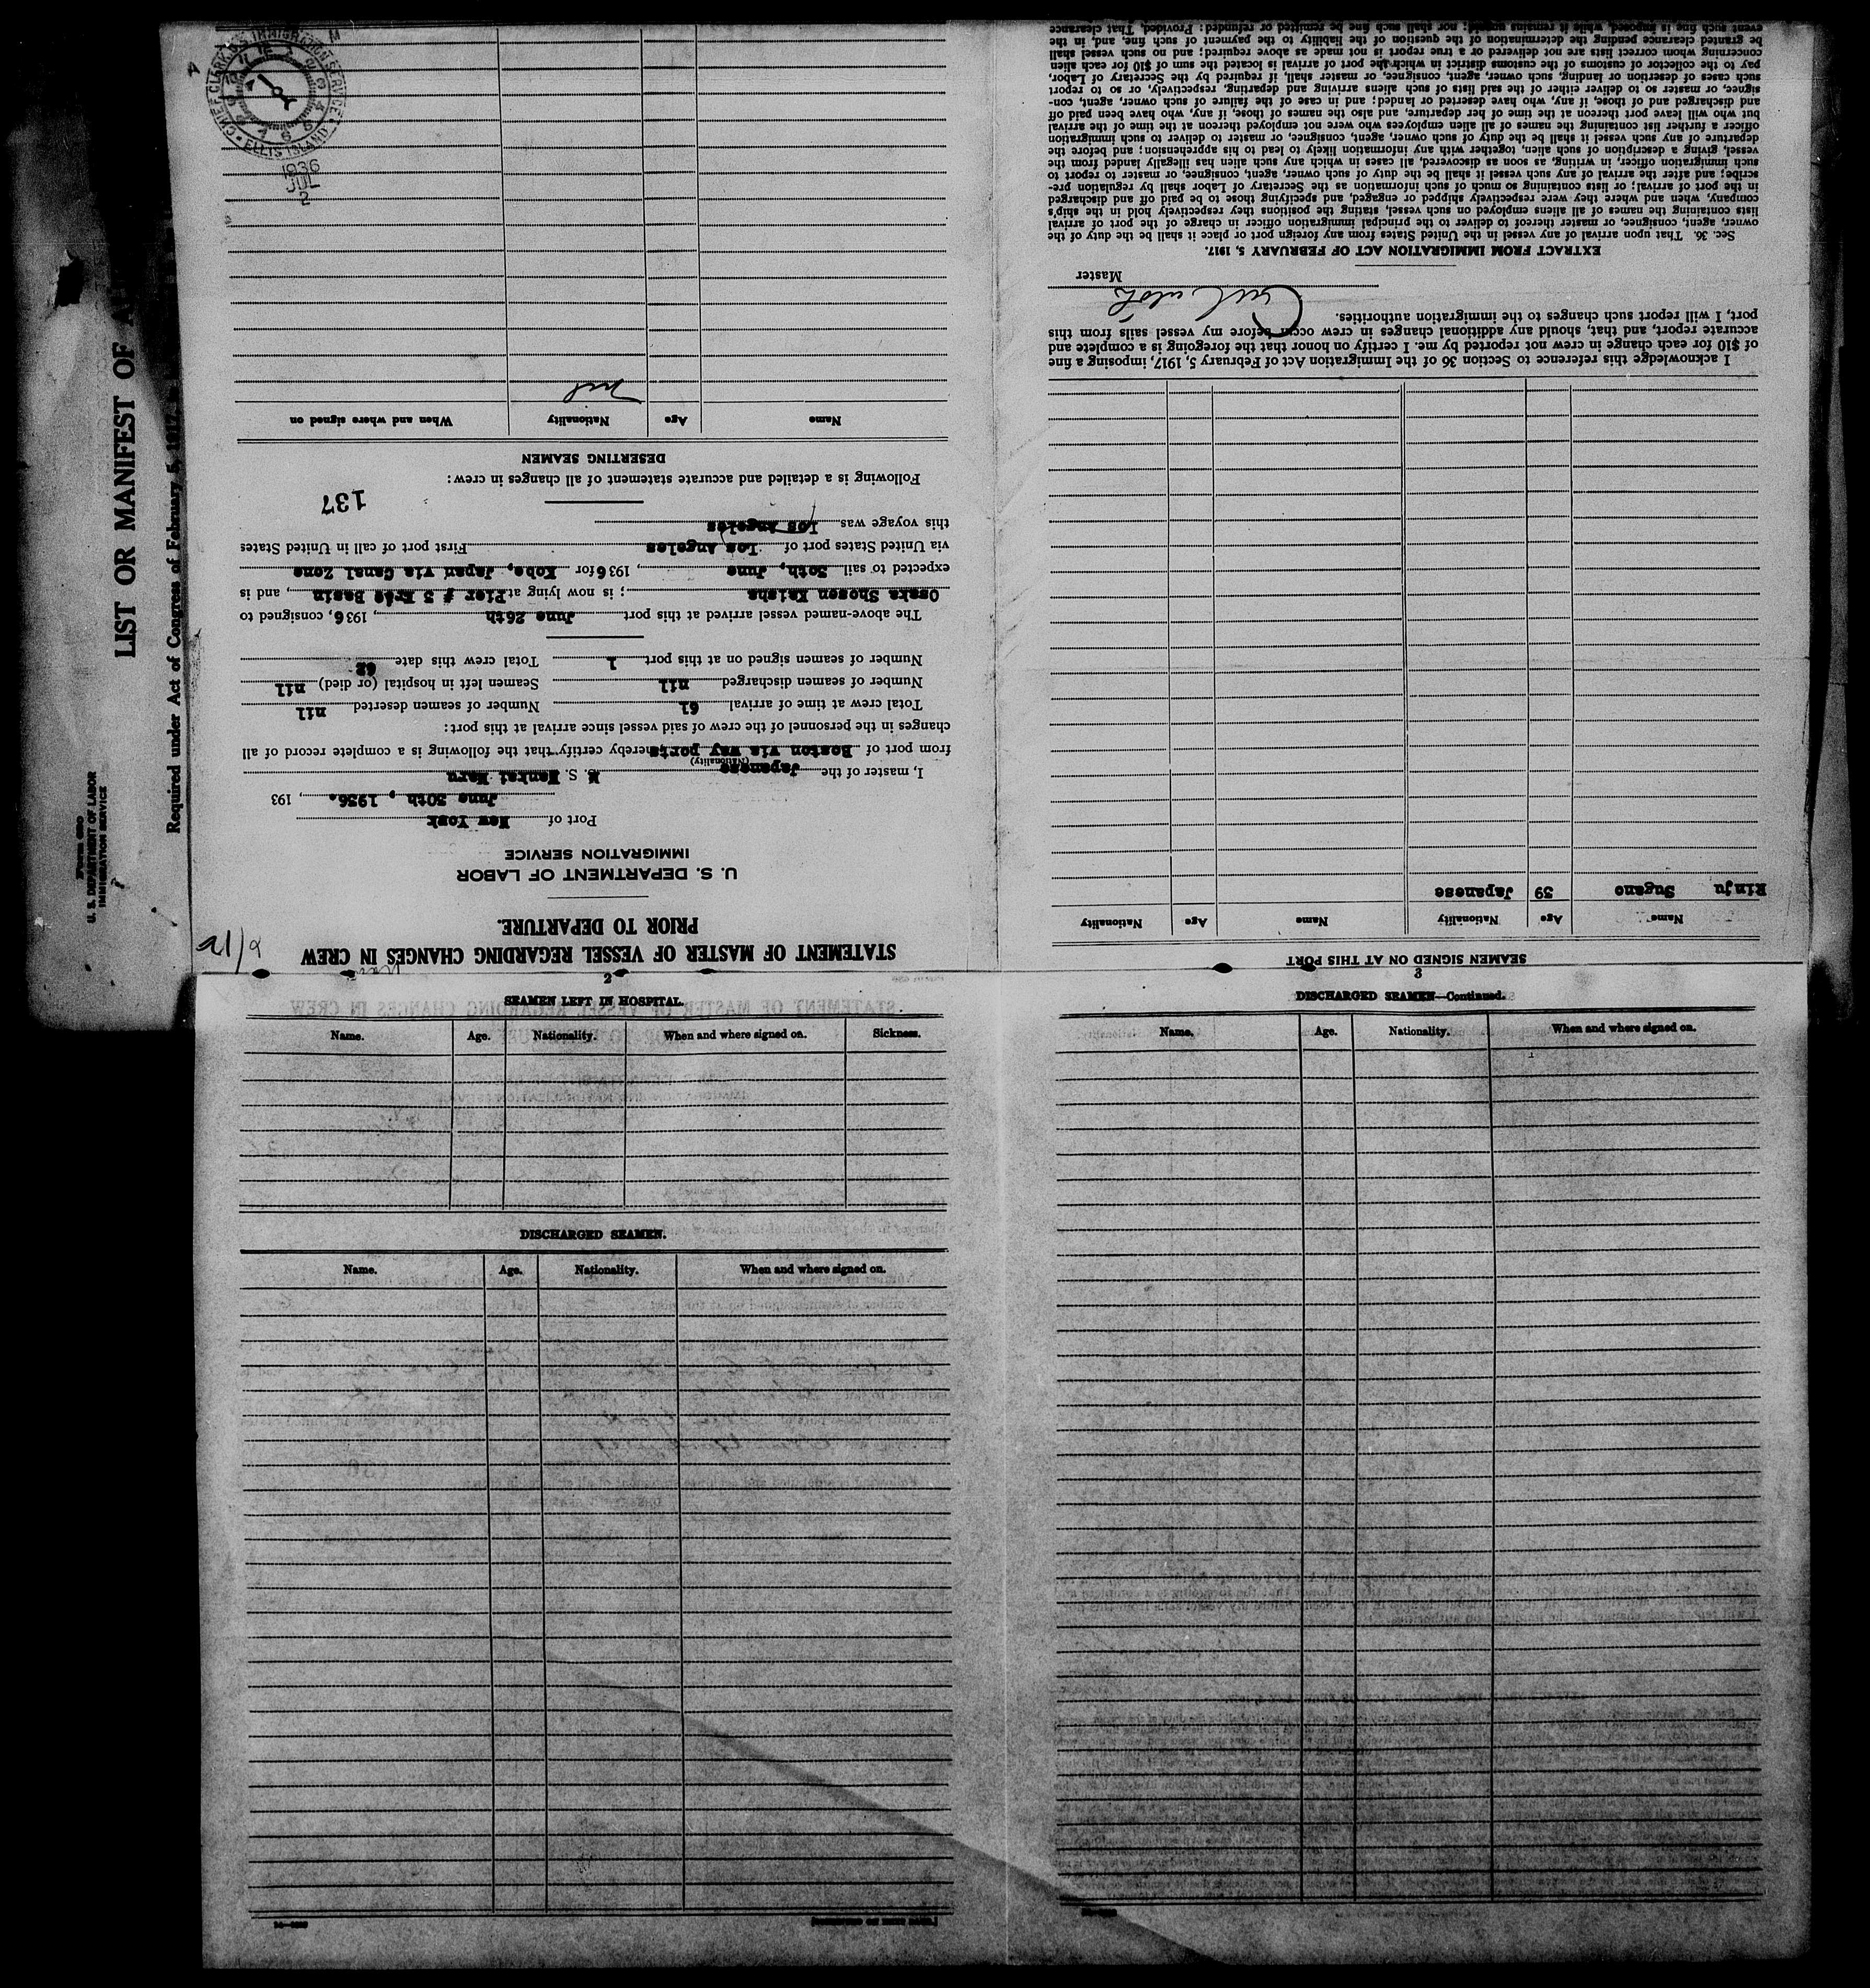 LIST OR MANIFEST OF
Required under Act of Congress of February 5, 1917
U. S. DEPARTMENT OF LABOR
IMMIGRATION SERVICE
STATEMENT OF MASTER OF VESSEL REGARDING CHANGES IN CREW
PRIOR TO DEPARTURE.
U. S. DEPARTMENT OF LABOR
IMMIGRATION SERVICE
Port of New York
June 30th, 1936. , 193
I, master of the Japanese M. S. Nankai Maru
(Nationality)
from port of Boston via way ports, hereby certify that the following is a complete record of all
changes in the personnel of the crew of said vessel since arrival at this port:
Total crew at time of arrival 61 Number of seamen deserted nil
Number of seamen discharged nil Seamen left in hospital (or died) nil
Number of seamen signed on at this port 1 Total crew this date 62
The above-named vessel arrived at this port June 26th, 1936, consigned to
Osaka Shosen Kaisha; is now lying at Pier # 3 Erie Basin, and is
expected to sail 30th, June, 1936 for Kobe, Japan via Canal Zone
via United States port of Los Angeles First port of call in United States
this voyage was Los Angeles
137
Following is a detailed and accurate statement of all changes in crew:
DESERTING SEAMEN
Name Age Nationality When and where signed on
nil
2
JUL
1936
CHIEF CLERK U.S. IMMIGRATION SERVICE
ELLIS ISLAND
SEAMEN SIGNED ON AT THIS PORT
Name Age Nationality Name Age Nationality
Rinju Sugano 39 Japanese
I acknowledge this reference to Section 36 of the Immigration Act of February 5, 1917, imposing a fine
of $10 for each change in crew not reported by me. I certify on honor that the foregoing is a complete and
accurate report, and that, should any additional changes in crew occur before my vessel sails from this
port, I will report such changes to the immigration authorities.
Master
EXTRACT FROM IMMIGRATION ACT OF FEBRUARY 5, 1917.
Sec. 36. That upon arrival of any vessel in the United States from any foreign port or place it shall be the duty of the
owner, agent, consignee, or master thereof to deliver to the principal immigration officer in charge of the port of arrival
lists containing the names of all aliens employed on such vessel, stating the positions they respectively hold in the ship's
company, when and where they were respectively shipped or engaged, and specifying those to be paid off and discharged
in the port of arrival; or lists containing so much of such information as the Secretary of Labor shall by regulation pre-
scribe; and after the arrival of any such vessel it shall be the duty of such owner, agent, consignee, or master to report to
such immigration officer, in writing, as soon as discovered, all cases in which any such alien has illegally landed from the
vessel, giving a description of such alien, together with any information likely to lead to his apprehension; and before the
departure of any such vessel it shall be the duty of such owner, agent, consignee, or master to deliver to such immigration
officer a further list containing the names of all alien employees who were not employed thereon at the time of the arrival
but who will leave port thereon at the time of her departure, and also the names of those, if any, who have been paid off
and discharged and of those, if any, who have deserted or landed; and in case of the failure of such owner, agent, con-
signee, or master so to deliver either of the said lists of such aliens arriving and departing, respectively, or so to report
such cases of desertion or landing, such owner, agent, consignee, or master, shall, if required by the Secretary of Labor,
pay to the collector of customs of the customs district in which the port of arrival is located the sum of $10 for each alien
concerning whom correct lists are not delivered or a true report is not made as above required; and no such vessel shall
be granted clearance pending the determination of the question of the liability to the payment of such fine, and, in the
event such fine is imposed, while it remains unpaid; nor shall such fine be remitted or refunded: Provided, That clearance
2
SEAMEN LEFT IN HOSPITAL.
Name. Age. Nationality. When and where signed on. Sickness.
DISCHARGED SEAMEN.
Name. Age. Nationality. When and where signed on.
3
DISCHARGED SEAMEN—Continued.
Name. Age. Nationality. When and where signed on.